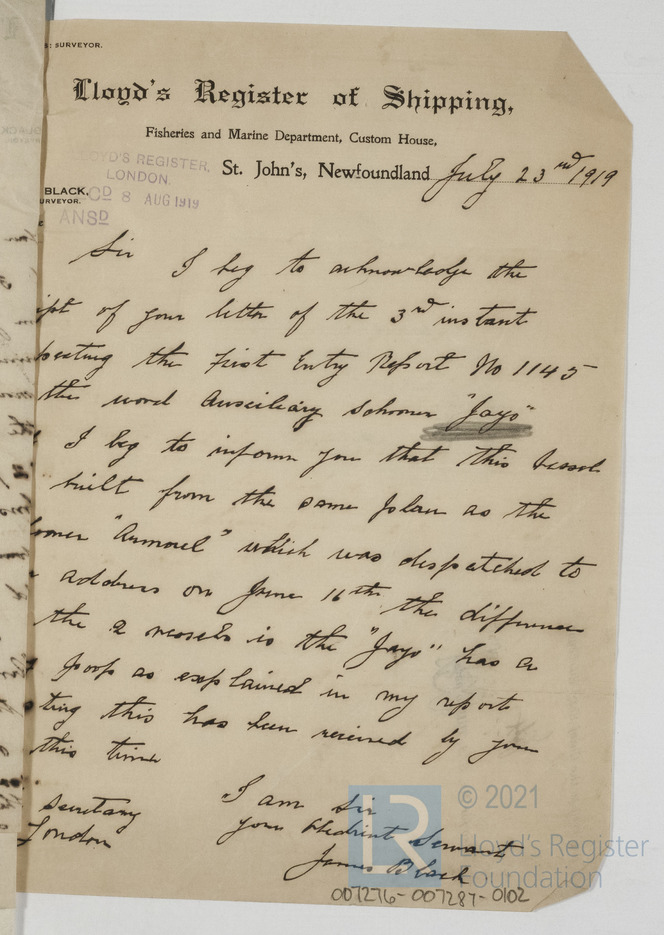 SURVEYOR.
Lloyd's Register of Shipping,
Fisheries and Marine Department, Custom House,
St. John's, Newfoundland July 23rd 1919
LLOYD'S REGISTER,
LONDON.
BLACK,
SURVEYOR.
8 AUG 1919
ANSD
Sir I beg to acknowledge the
ipt of your letter of the 3rd instant
pecting the First Entry Report No 1145
the wood Auxiliary Schooner "Jays"
I beg to inform you that this vessel
built from the same plan as the
ooner "Armorel" which was dispatched to
address on June 16th the difference
the 2 vessels is the "Jays" has a
poop as explained in my report
ting this has been received by you
this time
I am Sir
Secretary
your Obedient Servant
London
James Black
© 2021
Lloyd's Register
Foundation
007276-007287-0102